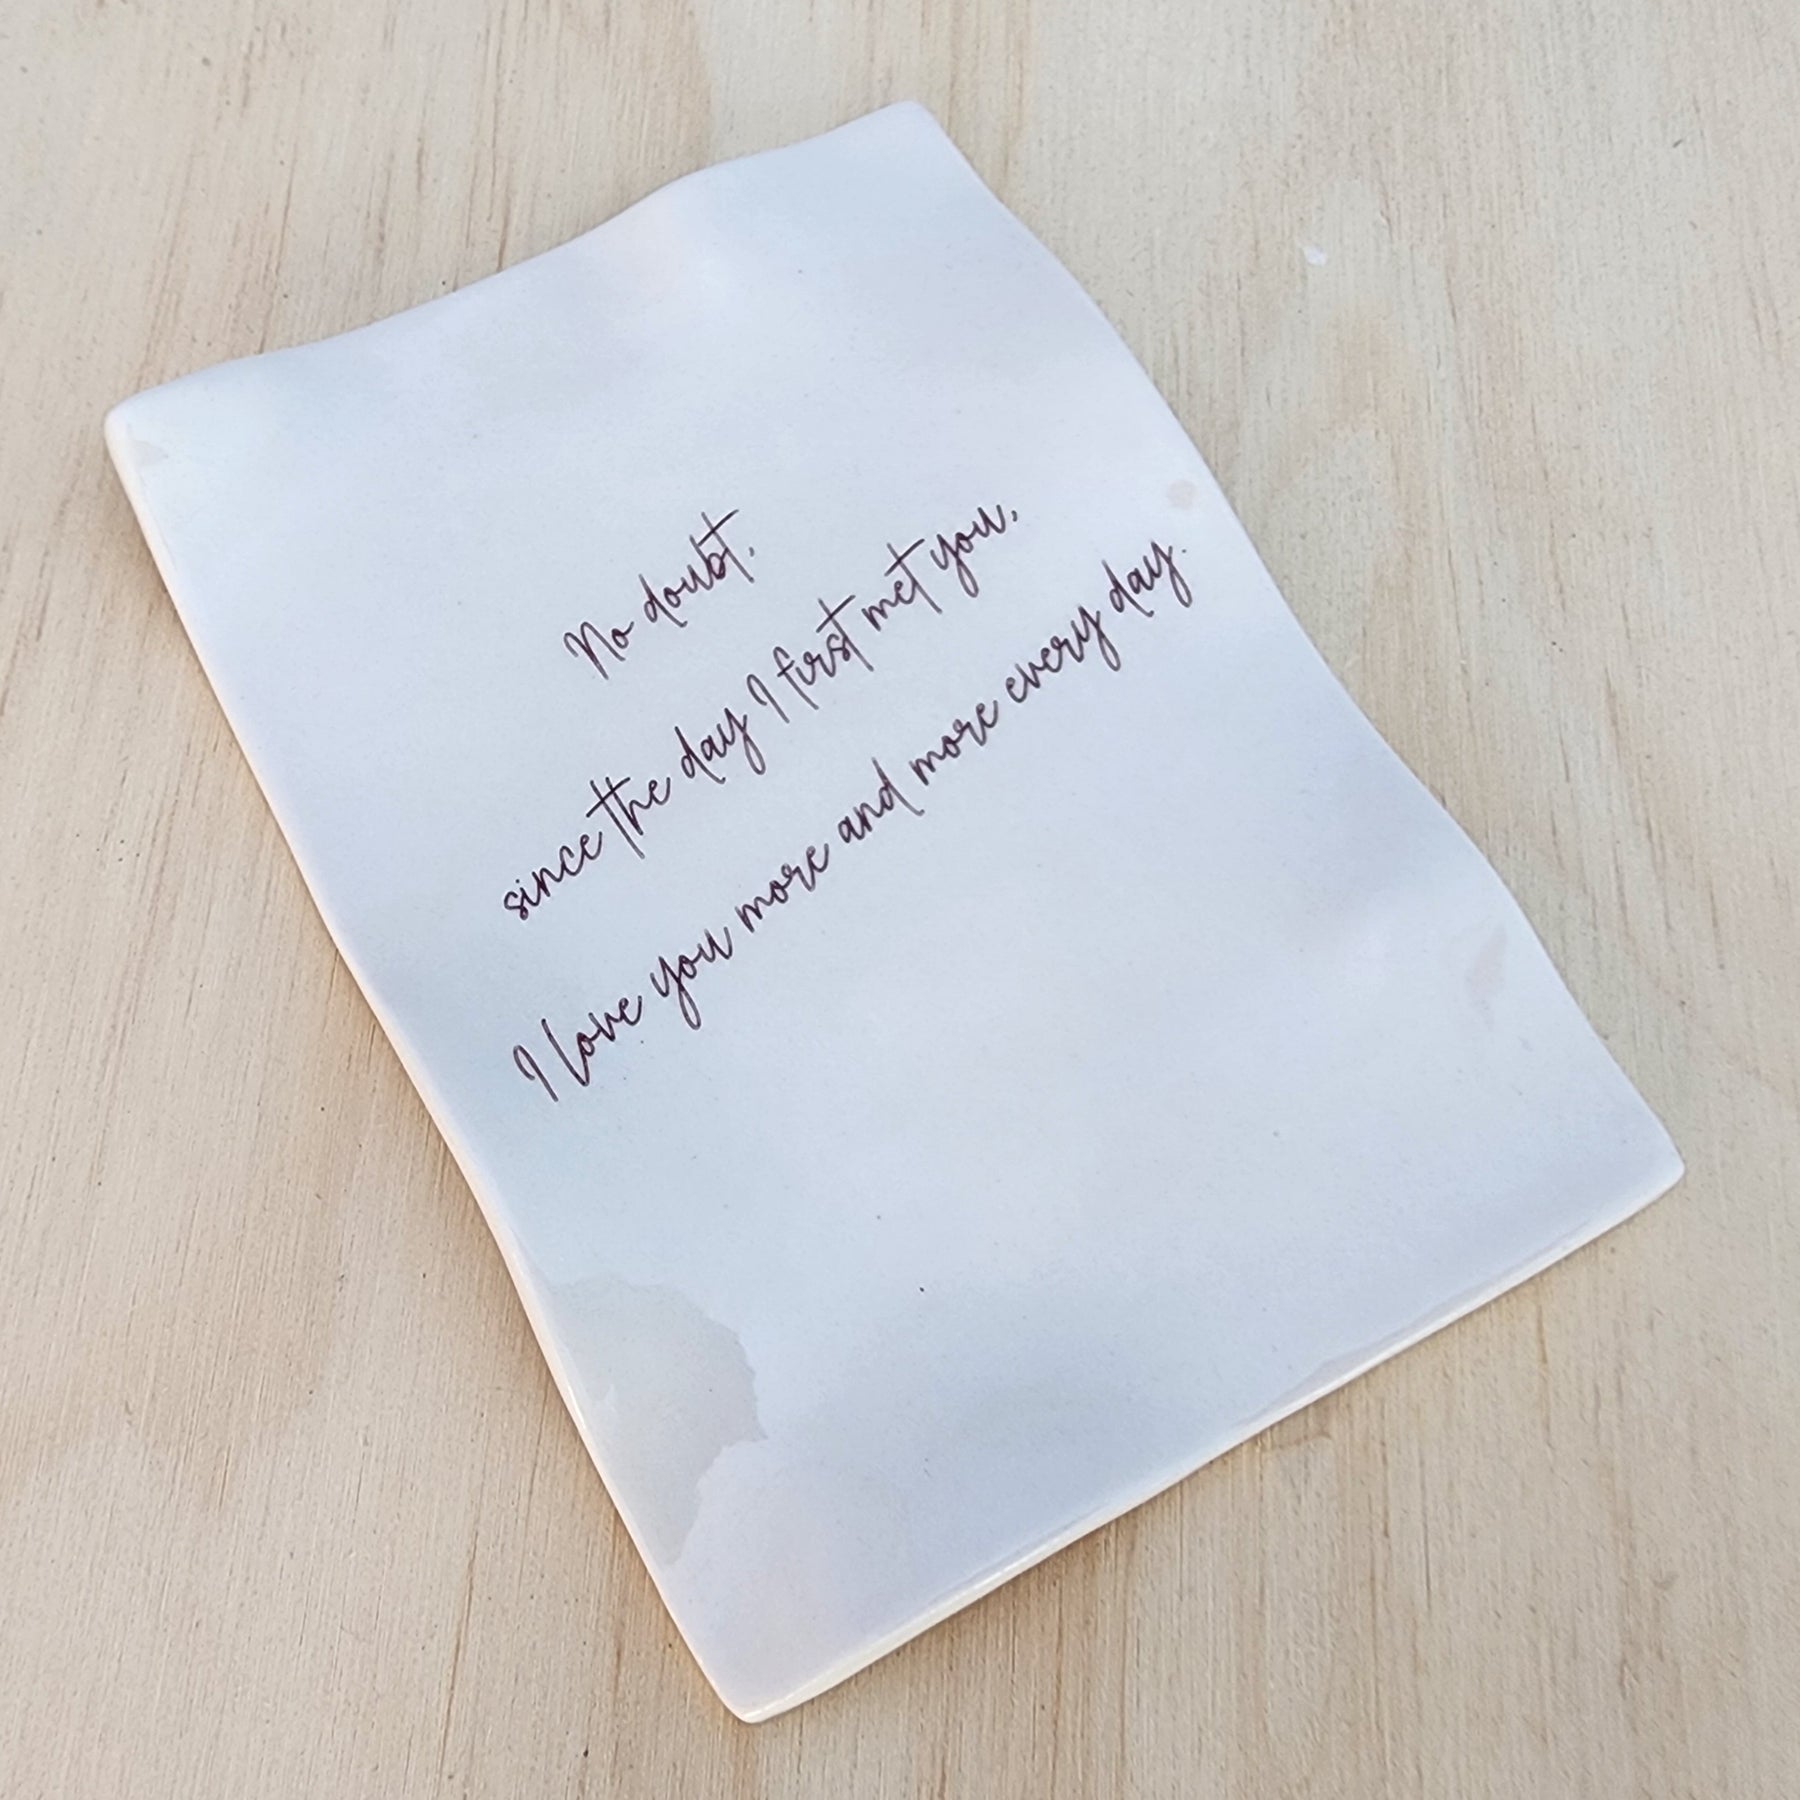 No doubt,
since the day I first met you,
I love you more and more every day.